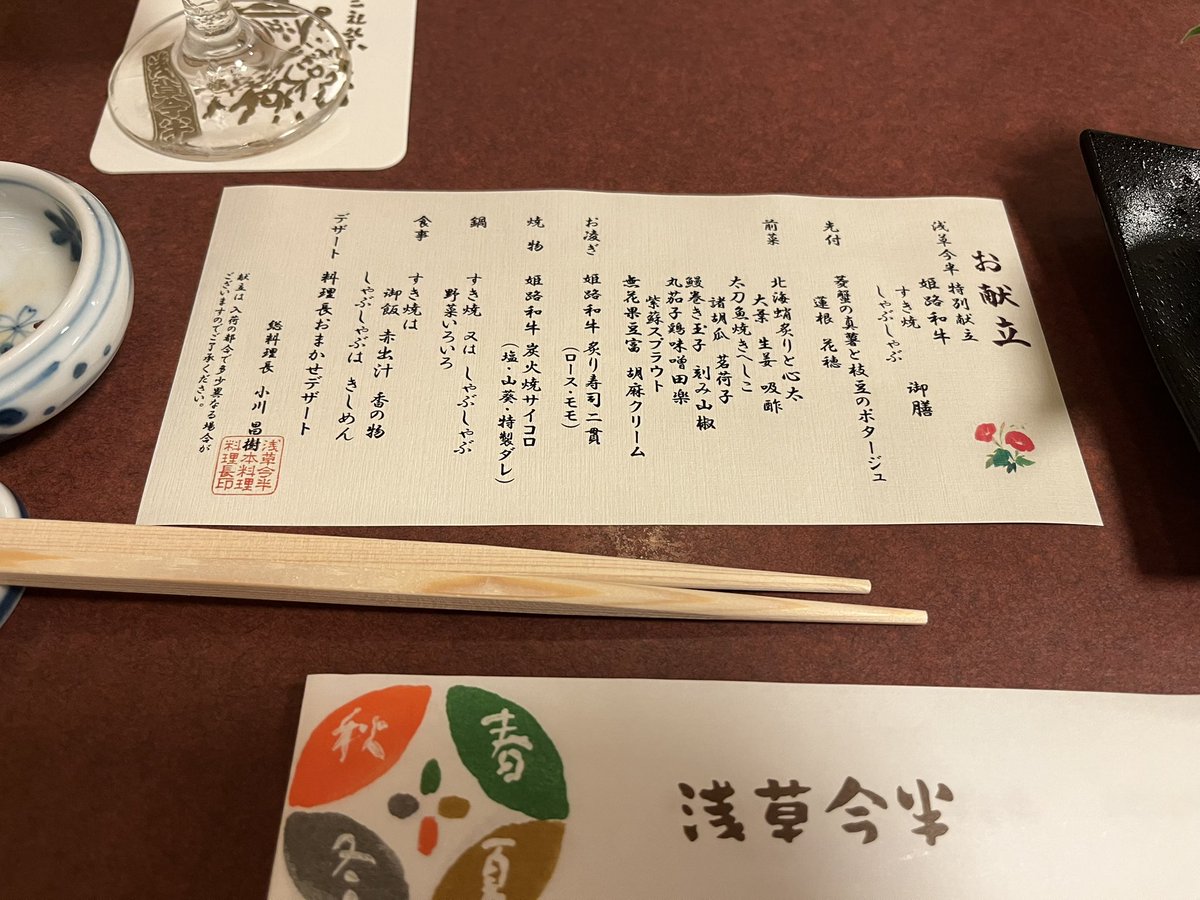 三社祭
浅草今半
お献立
浅草今半 特別献立
姫路和牛
すき焼
しゃぶしゃぶ
御膳
先付
菱蟹の真薯と枝豆のポタージュ
蓮根 花穂
前菜
北海蛸炙りと心太
大葉 生姜 吸酢
太刀魚焼きへしこ
諸胡瓜 茗荷子
鰻巻き玉子 刻み山椒
丸茄子鶏味噌田楽
紫蘇スプラウト
無花果豆富 胡麻クリーム
お凌ぎ
姫路和牛 炙り寿司二貫
(ロース・モモ)
焼物
姫路和牛 炭火焼サイコロ
(塩・山葵・特製ダレ)
鍋
すき焼 又は しゃぶしゃぶ
野菜いろいろ
食事
すき焼は
御飯 赤出汁 香の物
しゃぶしゃぶは きしめん
デザート
料理長おまかせデザート
総料理長 小川 昌樹
献立は入荷の都合で多少異なる場合が
ございますのでご了承ください。
浅草今半
日本料理
料理長印
春
夏
秋
冬
浅草今半